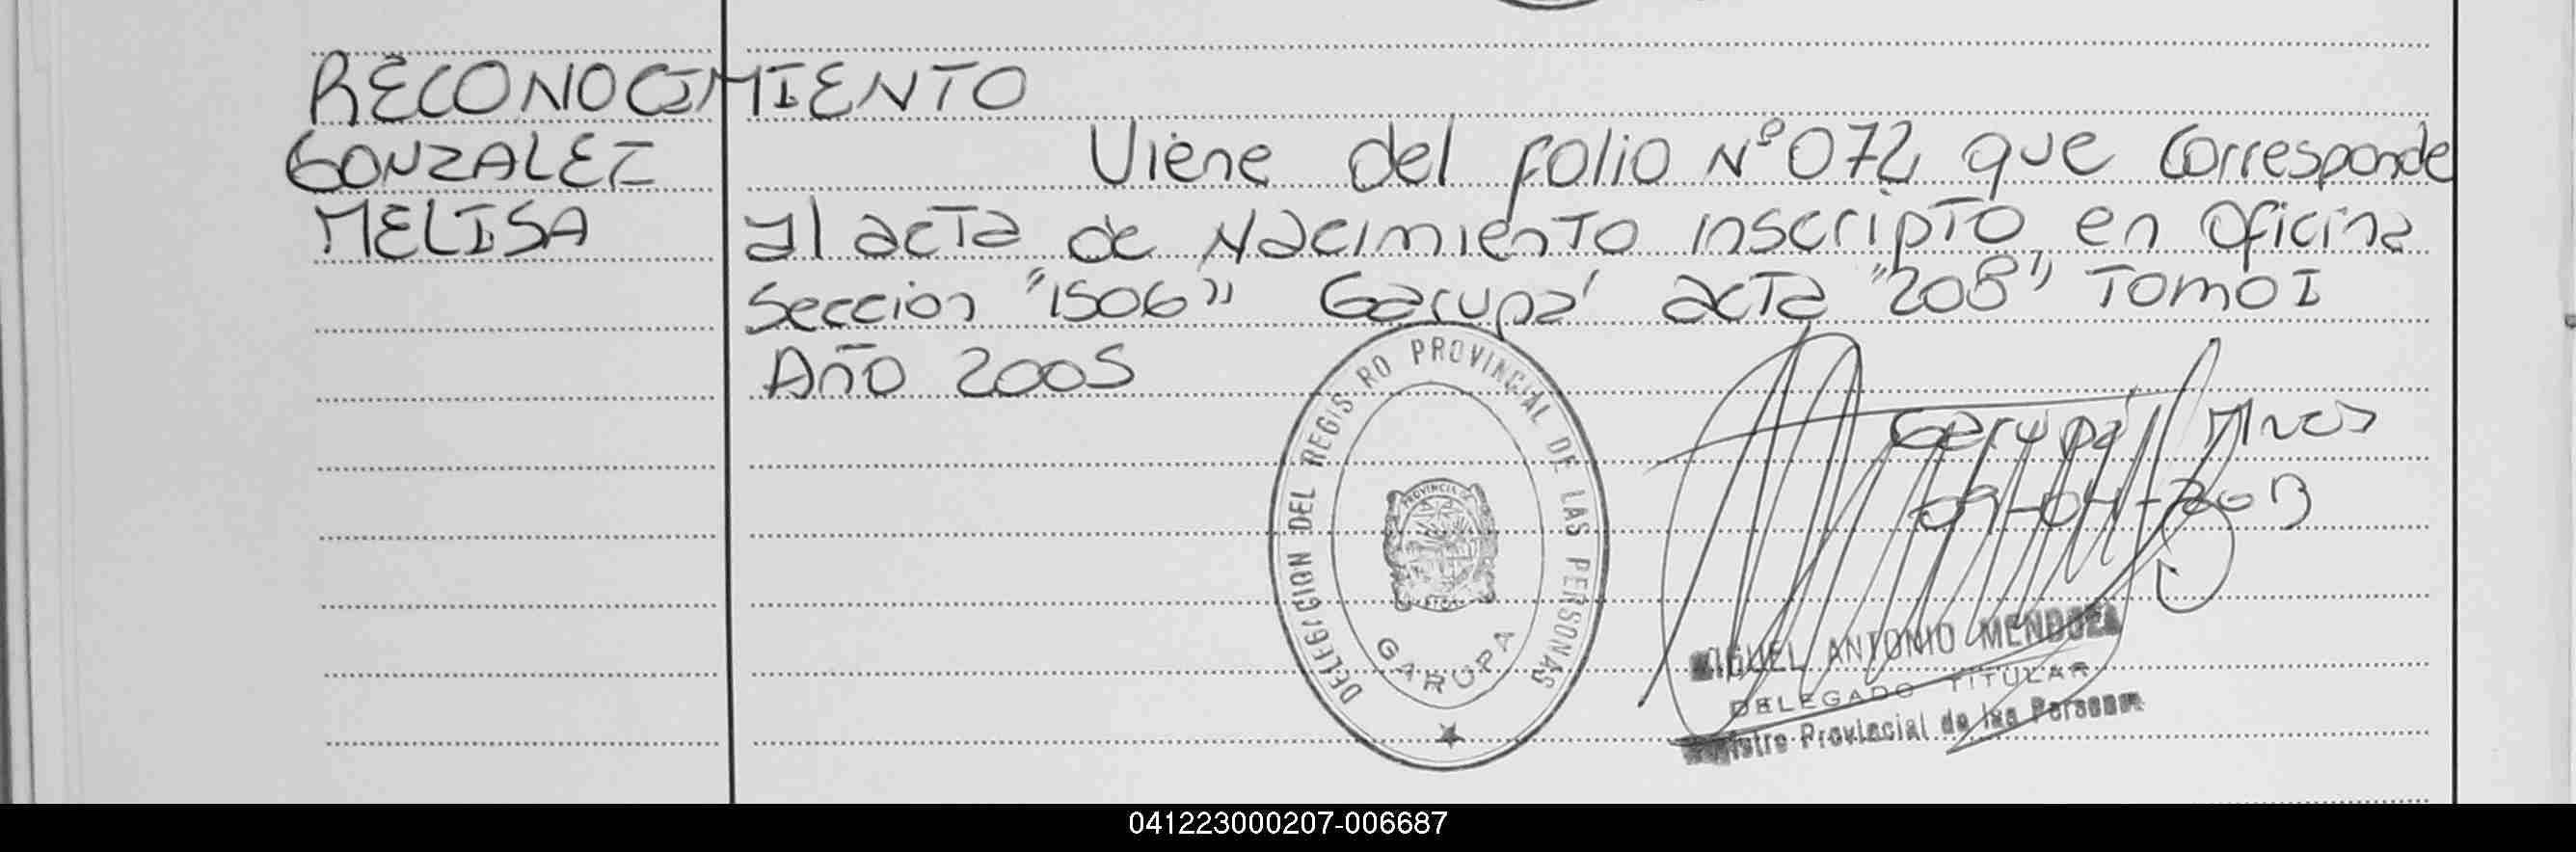 RECONOCIMIENTO
GONZALEZ
MELISA
Viene del folio Nº 072 que corresponde
al acta de Nacimiento inscripto en oficina
Seccion "1506" Garupa' acta "208" Tomo I
Año 2005
DELEGACION DEL REGISTRO PROVINCIAL DE LAS PERSONAS
PROVINCIA DE
GARUPA
Garupá Mnes
09-04-2013
MIGUEL ANTONIO MENDOZA
DELEGADO TITULAR
Registro Provincial de las Personas
041223000207-006687